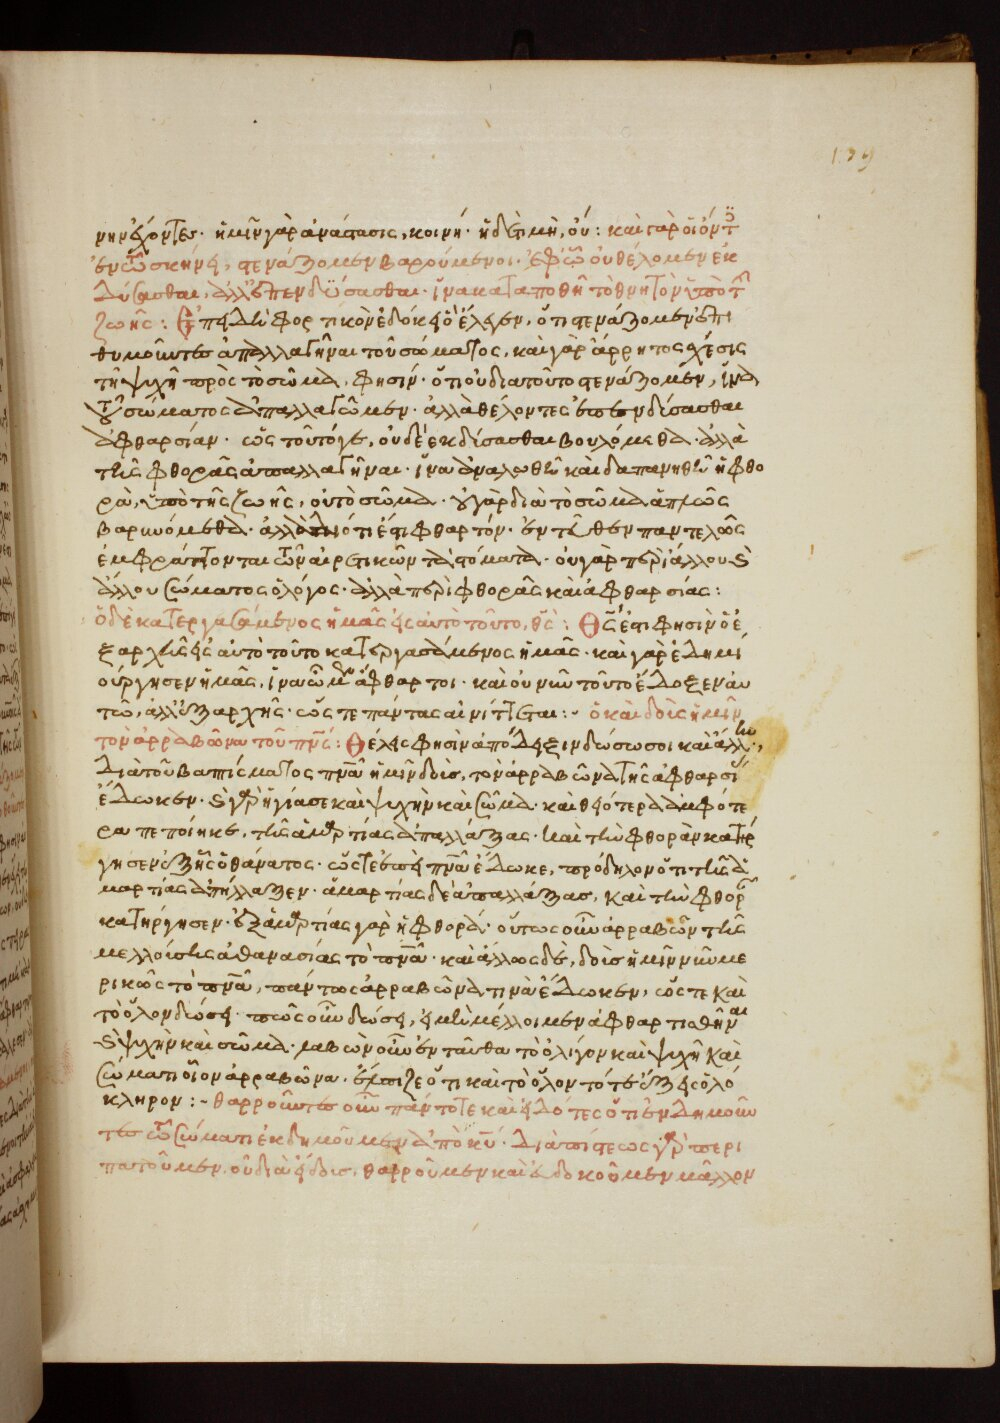 139
νην ἔχοντες. ἡ μὲν γὰρ ἀνάστασις, κοινή. ἡ δὲ τιμὴ, οὔ: καὶ γὰρ οἱ ὄντ
ἐν τῷ σκήνει, στενάζομεν βαρούμενοι. ἐφ' ᾧ οὐ θέλομεν ἐκ
δύσασθαι, ἀλλ' ἐπενδύσασθαι. ἵνα καταποθῇ τὸ θνητὸν ὑπὸ τῆς
ζωῆς: Ἐπειδὴ φορτικὸν ἐδόκει ὃ ἔλεγεν, ὅτι στενάζομεν ἐπι
θυμοῦντες ἀπαλλαγῆναι τοῦ σώματος, καὶ γὰρ ἄρρητος σχέσις
τῇ ψυχῇ πρὸς τὸ σῶμα, φησίν. ὅτι οὐ διὰ τοῦτο στενάζομεν, ἵνα
τοῦ σώματος ἀπαλλαγῶμεν. ἀλλὰ θέλοντες ἐπενδύσασθαι
ἀφθαρσίαν. ὡς τοῦτό γε, οὐδὲ ἐκδύσασθαι βουλόμεθα. ἀλλὰ
τῆς φθορᾶς ἀπαλλαγῆναι. ἵνα ἀναλωθῇ καὶ δαπανηθῇ ἡ φθο
ρὰ, ὑπὸ τῆς ζωῆς, οὐ τὸ σῶμα. οὐ γὰρ διὰ τὸ σῶμα ἁπλῶς
βαρυνόμεθα. ἀλλ' ὅτι ἐστὶ φθαρτόν. ἐντεῦθεν παντελῶς
ἐμφράττονται τῶν αἱρετικῶν τὰ στόματα. οὐ γὰρ περὶ ἄλλου καὶ
ἄλλου σώματος ὁ λόγος. ἀλλὰ περὶ φθορᾶς καὶ ἀφθαρσίας:
ὁ δὲ κατεργασάμενος ἡμᾶς εἰς αὐτὸ τοῦτο, θς: Θς ἐστι φησὶν ὁ ἐ
ξαρχῆς εἰς αὐτὸ τοῦτο κατεργασάμενος ἡμᾶς. καὶ γὰρ ἐδημι
ούργησεν ἡμᾶς, ἵνα ὦμεν ἄφθαρτοι. καὶ οὐ νῦν τοῦτο ἔδοξεν αὐ
τῷ, ἀλλ' ἐξαρχῆς. ὥστε πάντας αἰνίττεται:- ὁ καὶ δοὺς ἡμῖν
τὸν ἀρραβῶνα τοῦ πνς: Θέλεις φησὶν ἀπόδειξιν δώσω σοι καὶ ἄλλην,
διὰ τοῦ βαπτίσματος πνα ἡμῖν δοὺς, τὸν ἀρραβῶνα τῆς ἀφθαρσί
ἔδωκεν. καὶ γὰρ ἡγίασε καὶ ψυχὴν καὶ σῶμα. καὶ θειότερα ἀμφότε
ρα πεποίηκε, τῆς ἁμαρτίας ἀπαλλάξας. καὶ τὴν φθορὰν κατήρ
γησεν ἐξ ἧς ὁ θάνατος. ὥστε ἐπεὶ πνα ἔδωκε, πρόδηλον ὅτι τῆς ἁ
μαρτίας ἀπήλλαξεν. ἁμαρτίας δὲ ἀπαλλάξας, καὶ τὴν φθορ
κατήργησεν. ἐξ ἁμαρτίας γὰρ ἡ φθορά. οὕτως οὖν ἀρραβὼν τῆς
μελλούσης ἀθανασίας τὸ πνα. καὶ ἄλλως δὲ, δοὺς ἡμῖν νῦν με
ρικῶς τὸ πνα, πάντως ἀρραβῶνά τινα ἔδωκεν, ὥστε καὶ
τὸ ὅλον δώσει. πῶς οὖν δώσει, εἰ μὴ μέλλοιμεν ἀφθαρτισθῆναι
καὶ ψυχὴν καὶ σῶμα. λαβὼν οὖν ἐνταῦθα τὸ ὀλίγον καὶ ψυχῇ καὶ
σώματι οἷον ἀρραβῶνα. ἔλπιζε ὅτι καὶ τὸ ὅλον τότε ἕξεις ὁλό
κληρον:- θαρροῦντες οὖν πάντοτε καὶ εἰδότες ὅτι ἐνδημοῦν
τες τῷ σώματι ἐκδημοῦμεν ἀπὸ κυ. διὰ πίστεως γὰρ περι
πατοῦμεν, οὐ διὰ εἴδους, θαρροῦμεν καὶ εὐδοκοῦμεν μᾶλλον